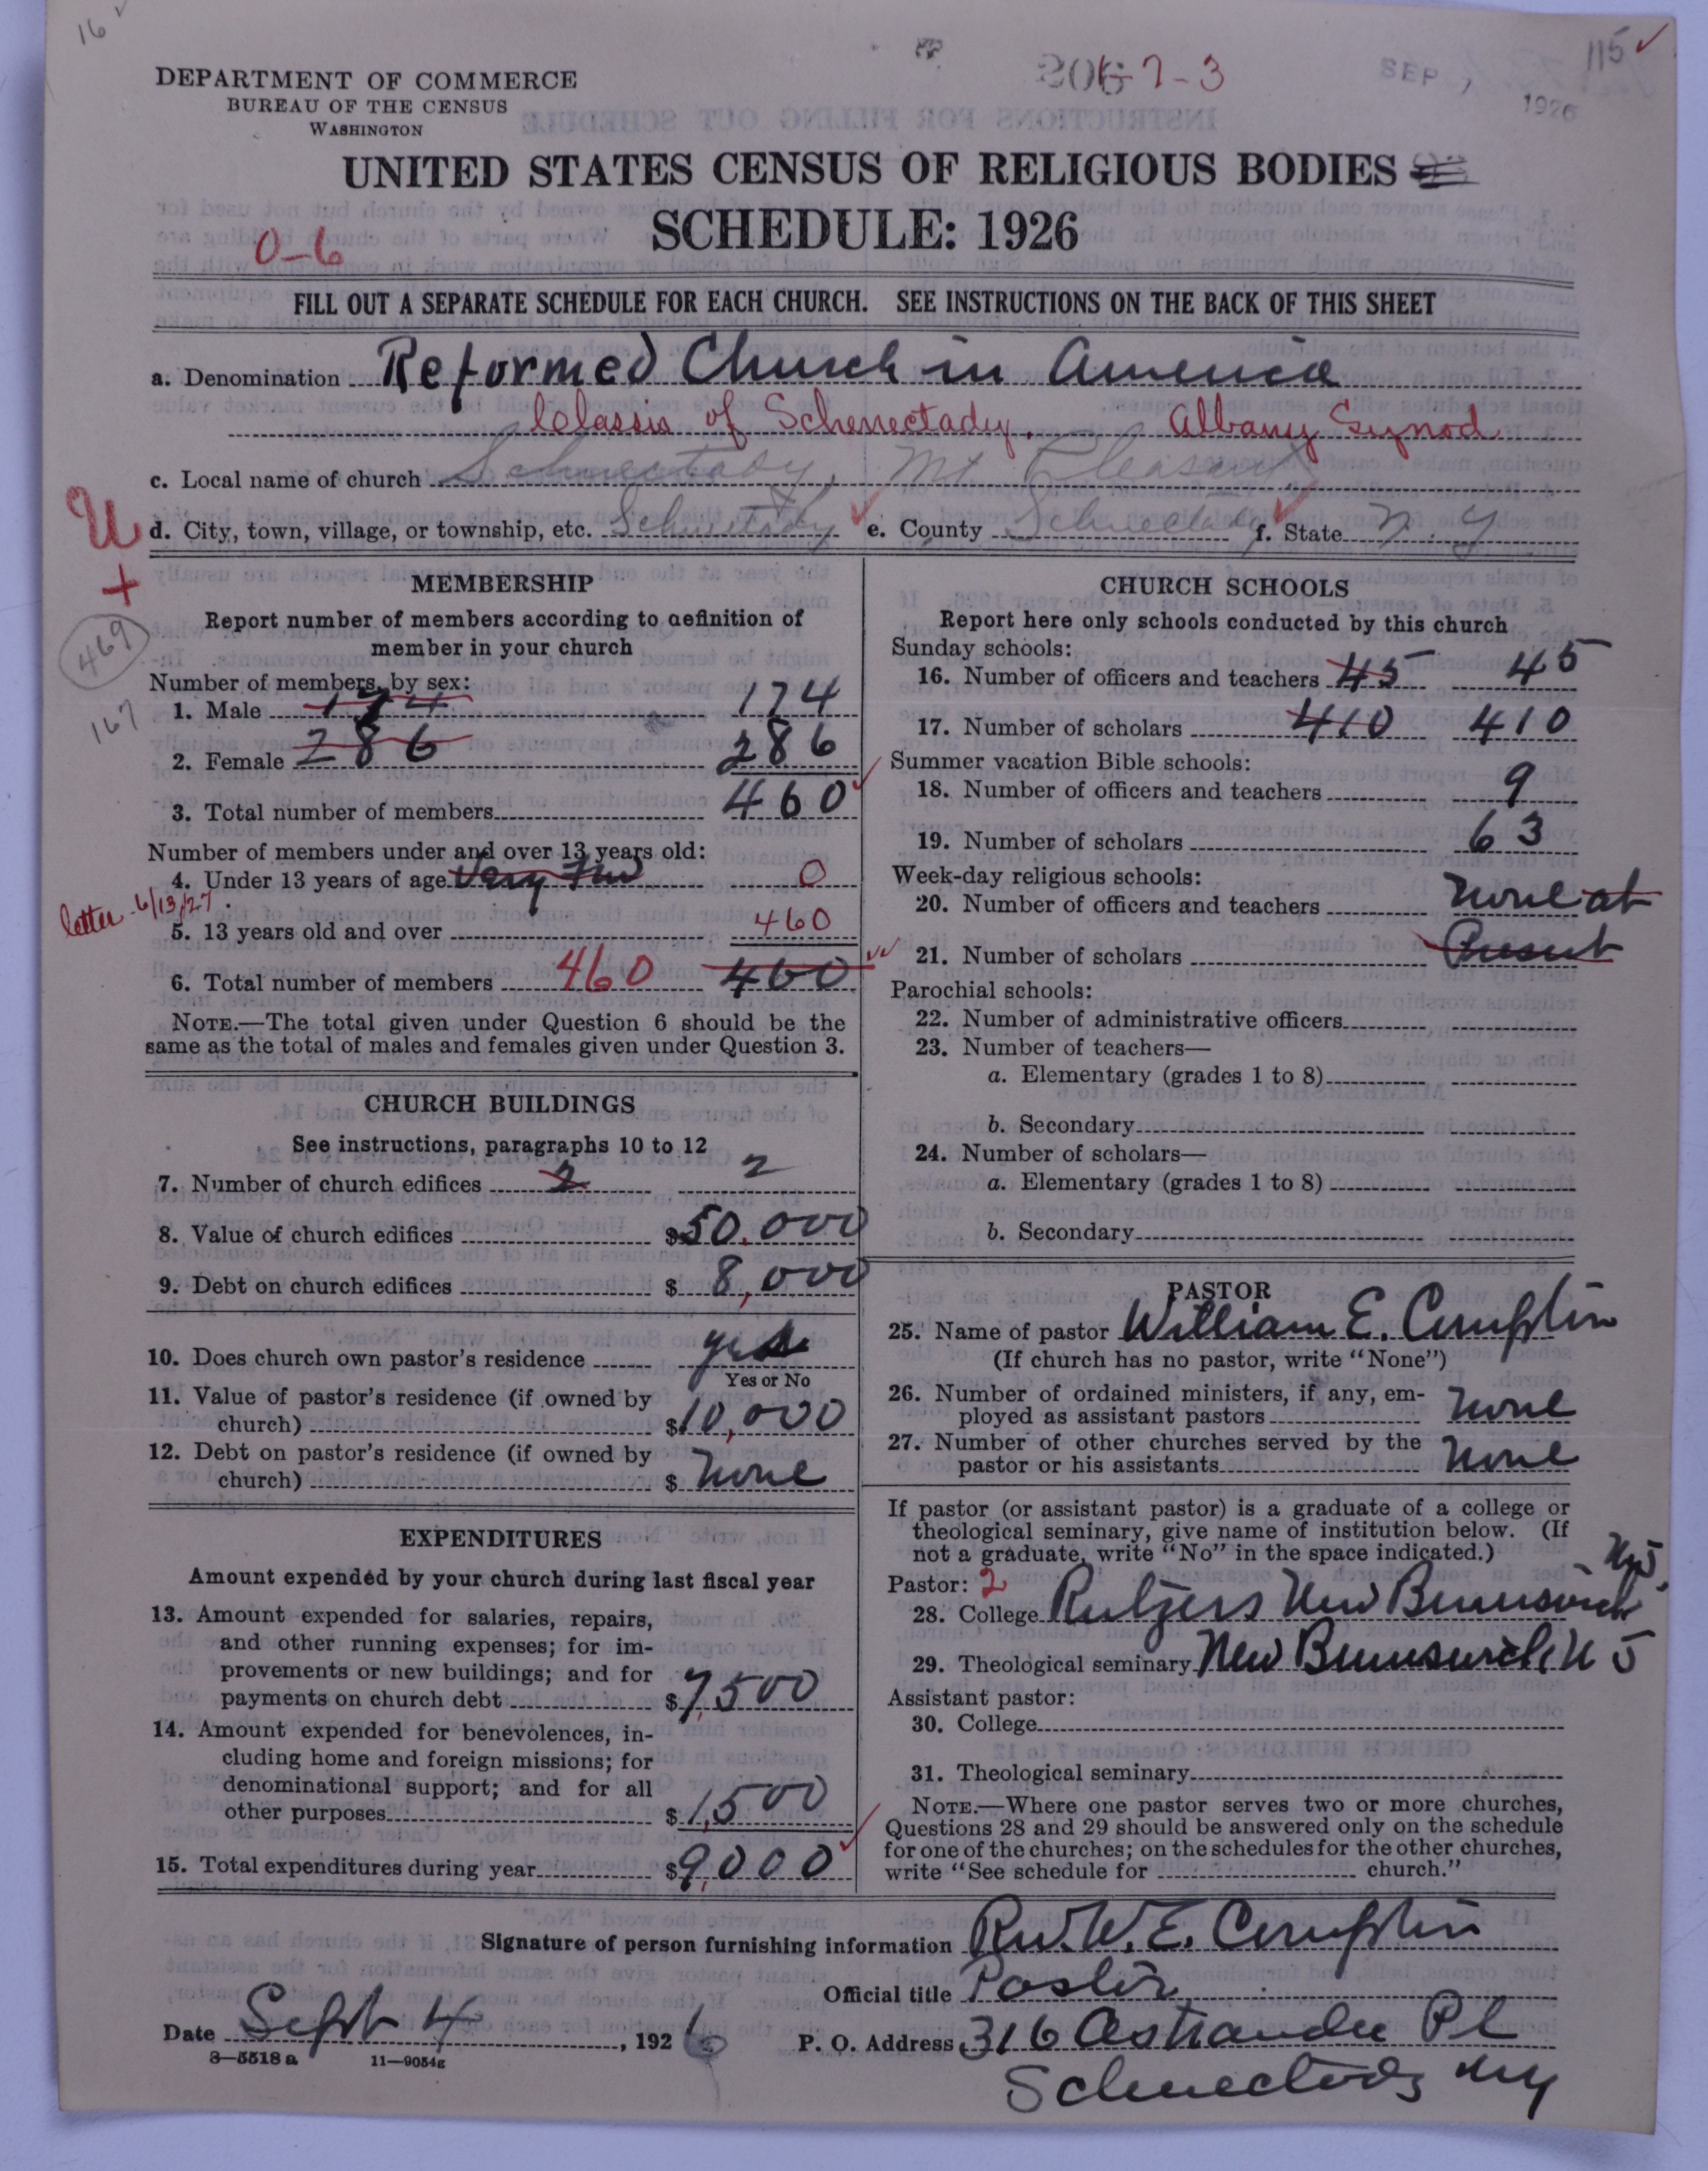 16
206-7-3
SEP 7 1926
115
DEPARTMENT OF COMMERCE
BUREAU OF THE CENSUS
WASHINGTON
UNITED STATES CENSUS OF RELIGIOUS BODIES
SCHEDULE: 1926
0-6
FILL OUT A SEPARATE SCHEDULE FOR EACH CHURCH. SEE INSTRUCTIONS ON THE BACK OF THIS SHEET
a. Denomination Reformed Church in America
Classis of Schenectady. Albany Synod
c. Local name of church Schenectady, Mt Pleasant
U d. City, town, village, or township, etc. Schenectady e. County Schnectady f. State N. Y
+
469
167
MEMBERSHIP
Report number of members according to definition of
member in your church
Number of members, by sex:
1. Male 174 174
2. Female 286 286
3. Total number of members 460
Number of members under and over 13 years old:
4. Under 13 years of age Very Few 0
letter 6/13/27.
5. 13 years old and over 460
6. Total number of members 460 460
NOTE.—The total given under Question 6 should be the
same as the total of males and females given under Question 3.
CHURCH BUILDINGS
See instructions, paragraphs 10 to 12
7. Number of church edifices 2 2
8. Value of church edifices $50,000
9. Debt on church edifices $ 8,000
10. Does church own pastor's residence yes
Yes or No
11. Value of pastor's residence (if owned by
church) $10,000
12. Debt on pastor's residence (if owned by
church) $ none
EXPENDITURES
Amount expended by your church during last fiscal year
13. Amount expended for salaries, repairs,
and other running expenses; for im-
provements or new buildings; and for
payments on church debt $7,500
14. Amount expended for benevolences, in-
cluding home and foreign missions; for
denominational support; and for all
other purposes $1,500
15. Total expenditures during year $9,000
CHURCH SCHOOLS
Report here only schools conducted by this church
Sunday schools:
16. Number of officers and teachers 45 45
17. Number of scholars 410 410
Summer vacation Bible schools:
18. Number of officers and teachers 9
19. Number of scholars 63
Week-day religious schools:
20. Number of officers and teachers none at
21. Number of scholars Present
Parochial schools:
22. Number of administrative officers
23. Number of teachers—
a. Elementary (grades 1 to 8)
b. Secondary
24. Number of scholars—
a. Elementary (grades 1 to 8)
b. Secondary
PASTOR
25. Name of pastor William E. Compton
(If church has no pastor, write "None")
26. Number of ordained ministers, if any, em-
ployed as assistant pastors none
27. Number of other churches served by the
pastor or his assistants none
If pastor (or assistant pastor) is a graduate of a college or
theological seminary, give name of institution below. (If
not a graduate, write "No" in the space indicated.)
Pastor: 2
28. College Rutgers New Brunswick N.J.
29. Theological seminary New Brunswick N J
Assistant pastor:
30. College
31. Theological seminary
NOTE.—Where one pastor serves two or more churches,
Questions 28 and 29 should be answered only on the schedule
for one of the churches; on the schedules for the other churches,
write "See schedule for church."
Signature of person furnishing information Rev. W. E. Compton
Official title Pastor
Date Sept 4, 1926 P. O. Address 316 Ostrander Pl
3—5518 a 11—9054g
Schenectady NY